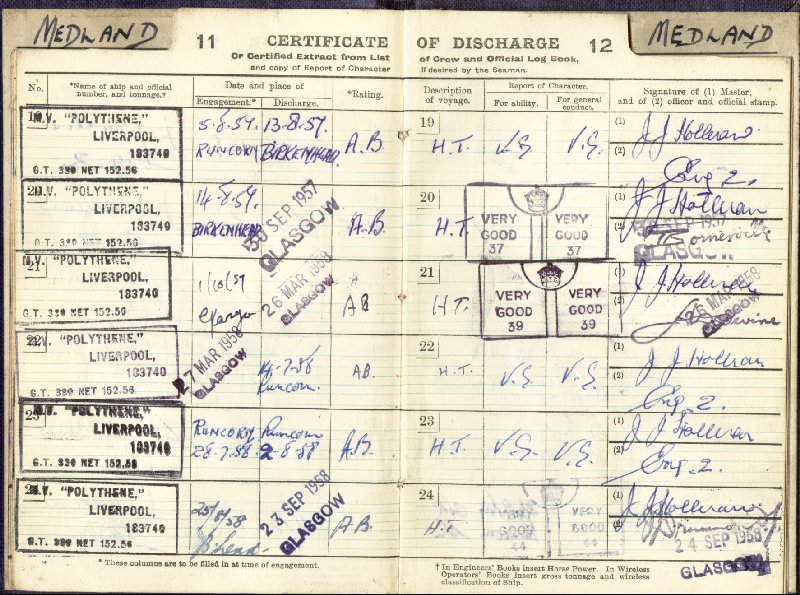 MEDLAND
MEDLAND
11 CERTIFICATE OF DISCHARGE 12
Or Certified Extract from List of Crew and Official Log Book,
and copy of Report of Character if desired by the Seaman.
No.
*Name of ship and official
number, and tonnage.†
Date and place of
Engagement.* Discharge.
*Rating.
Description
of voyage.
Report of Character.
For ability.
For general
conduct.
Signature of (1) Master;
and of (2) officer and official stamp.
19
M.V. "POLYTHENE,"
LIVERPOOL,
183740
G.T. 330 NET 152.56
5.8.57. 13-8.57.
RUNCORN BIRKENHEAD.
A.B.
19
H.T. V.G. V.G.
(1) J J Holleran
(2) Eng 2.
20
M.V. "POLYTHENE,"
LIVERPOOL,
183740
G.T. 330 NET 152.56
14.8.57.
BIRKENHEAD
30 SEP 1957
GLASGOW
A.B.
20
H.T.
VERY GOOD 37
VERY GOOD 37
(1) J J Holleran
(2) Somerville
SEP 1957
GLASGOW
21
M.V. "POLYTHENE,"
LIVERPOOL,
183740
G.T. 330 NET 152.56
1/10/57
Glasgow
26 MAR 1958
GLASGOW
AB
21
H.T.
VERY GOOD 39
VERY GOOD 39
(1) J J Holleran
(2)
26 MAR 1958
GLASGOW
22
M.V. "POLYTHENE,"
LIVERPOOL,
183740
G.T. 330 NET 152.56
27 MAR 1958
GLASGOW
14-7-58
Runcorn
AB.
22
H.T. V.G. V.G.
(1) J J Holleran
(2) Eng. 2.
23
M.V. "POLYTHENE,"
LIVERPOOL,
183740
G.T. 330 NET 152.56
RUNCORN Runcorn
28-7-58. 2-8-58
A.B.
23
H.T. V.G. V.G.
(1) J J Holleran
(2) Eng. 2.
24
M.V. "POLYTHENE,"
LIVERPOOL,
183740
G.T. 330 NET 152.56
25/8/58
B'head
23 SEP 1958
GLASGOW
AB.
24
H.T.
VERY GOOD 44
VERY GOOD 44
(1) J J Holleran
(2)
24 SEP 1958
GLASGOW
* These columns are to be filled in at time of engagement.
† In Engineers' Books insert Horse Power. In Wireless
Operators' Books insert gross tonnage and wireless
classification of Ship.